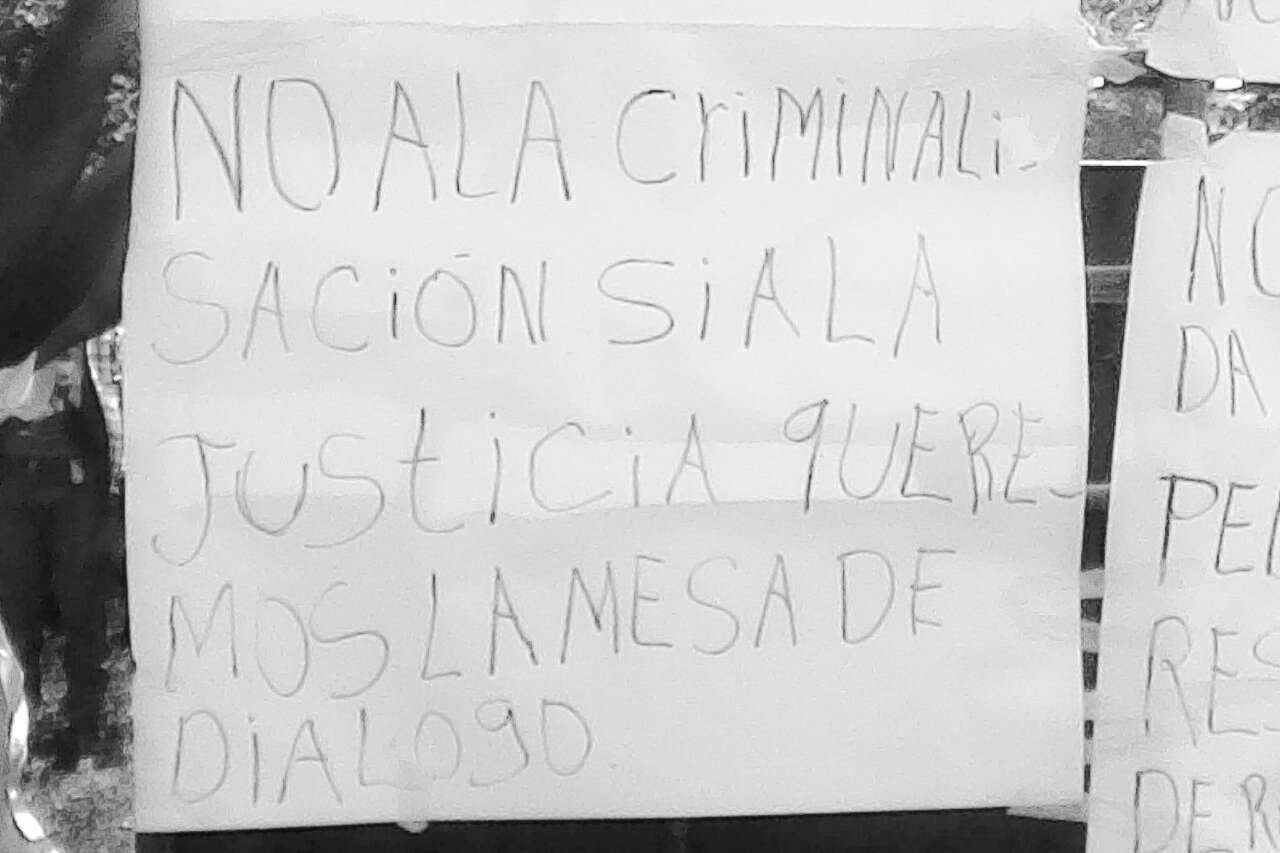 NO A LA CriMiNALi-
SACiÓN Si A LA
JUSticiA qUERE-
MOS LA MESA DE
DiALOgO.
NO
DA
RES
DER